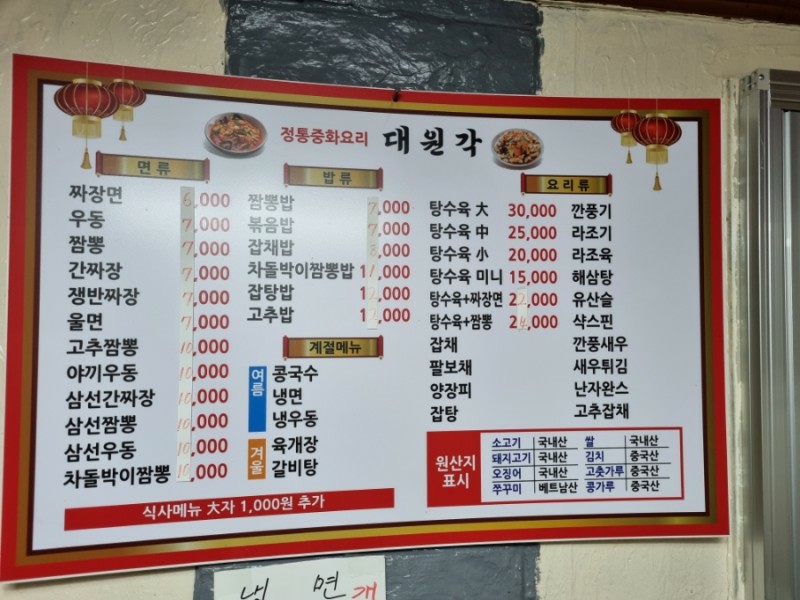 정통중화요리 대원각
면 류
짜장면 6,000
우동 7,000
짬뽕 7,000
간짜장 7,000
쟁반짜장 7,000
울면 7,000
고추짬뽕 10,000
야끼우동 10,000
삼선간짜장 10,000
삼선짬뽕 10,000
삼선우동 10,000
차돌박이짬뽕 10,000
밥 류
짬뽕밥 7,000
볶음밥 7,000
잡채밥 8,000
차돌박이짬뽕밥 11,000
잡탕밥 12,000
고추밥 12,000
계절메뉴
여름
콩국수
냉면
냉우동
겨울
육개장
갈비탕
요 리 류
탕수육 大 30,000
탕수육 中 25,000
탕수육 小 20,000
탕수육 미니 15,000
탕수육+짜장면 22,000
탕수육+짬뽕 24,000
잡채
팔보채
양장피
잡탕
깐풍기
라조기
라조육
해삼탕
유산슬
샥스핀
깐풍새우
새우튀김
난자완스
고추잡채
원산지
표시
소고기 국내산 쌀 국내산
돼지고기 국내산 김치 중국산
오징어 국내산 고춧가루 중국산
쭈꾸미 베트남산 콩가루 중국산
식사메뉴 大자 1,000원 추가
냉 면